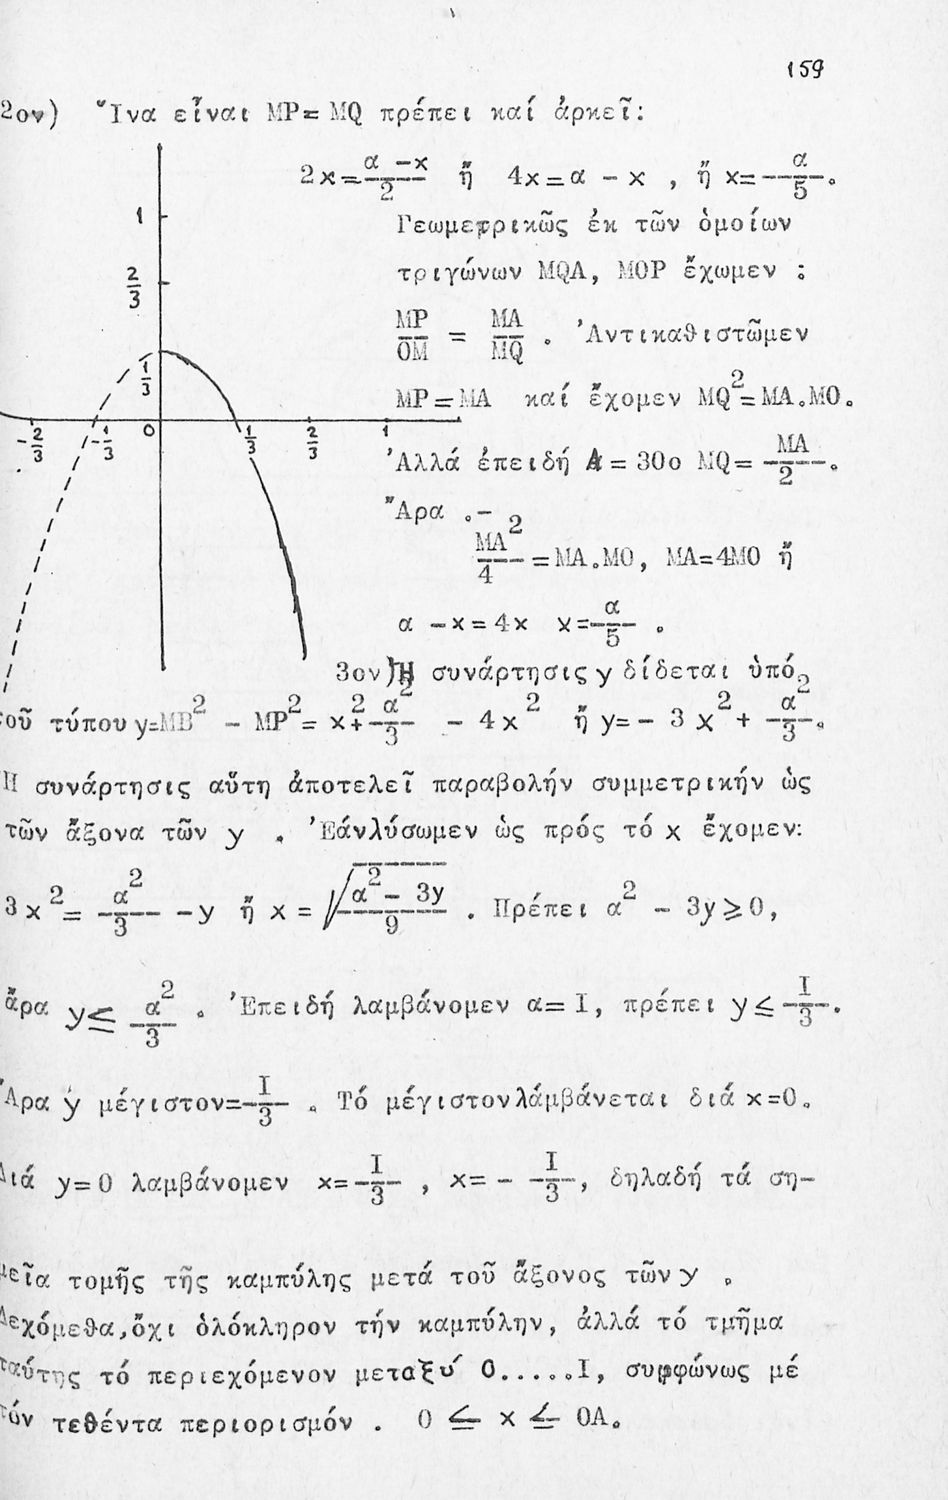 159
2ον) Ἵνα εἶναι MP= MQ πρέπει καί ἀρκεῖ:
2x=α -x/2 ἤ 4x=α - x , ἤ x=α/5.
Γεωμετρικῶς ἐκ τῶν ὁμοίων
τριγώνων MQA, MOP ἔχωμεν :
MP/OM = MA/MQ . Ἀντικαθιστῶμεν
MP=MA καί ἔχομεν MQ²=MA.MO.
Ἀλλά ἐπειδή A= 30ο MQ= MA/2.
Ἄρα .-
MA²/4 =MA.MO, MA=4MO ἤ
α -x=4x x=α/5 .
1
2/3
1/3
-2/3 -1/3 0 1/3 2/3 1
3ον)Ἡ συνάρτησις y δίδεται ὑπό
τοῦ τύπου y=MB² - MP²= x²+α²/3 - 4x² ἤ y= - 3x²+ α²/3.
Ἡ συνάρτησις αὕτη ἀποτελεῖ παραβολήν συμμετρικήν ὡς
τῶν ἄξονα τῶν y . Ἐάνλύσωμεν ὡς πρός τό x ἔχομεν:
3x²= α²/3 -y ἤ x = √α²- 3y/9 . Πρέπει α² - 3y≥0,
ἄρα y≤ α²/3 . Ἐπειδή λαμβάνομεν α= I, πρέπει y≤ I/3.
Ἄρα y μέγιστον=I/3 . Τό μέγιστονλάμβάνεται διά x=0.
Διά y=0 λαμβάνομεν x=I/3 , x= - I/3, δηλαδή τά ση-
μεῖα τομῆς τῆς καμπύλης μετά τοῦ ἄξονος τῶν y .
Δεχόμεθα,ὄχι ὁλόκληρον τήν καμπύλην, ἀλλά τό τμῆμα
ταύτης τό περιεχόμενον μεταξύ 0.....I, συφφώνως μέ
τόν τεθέντα περιορισμόν . 0 ≤ x ≤ OA.